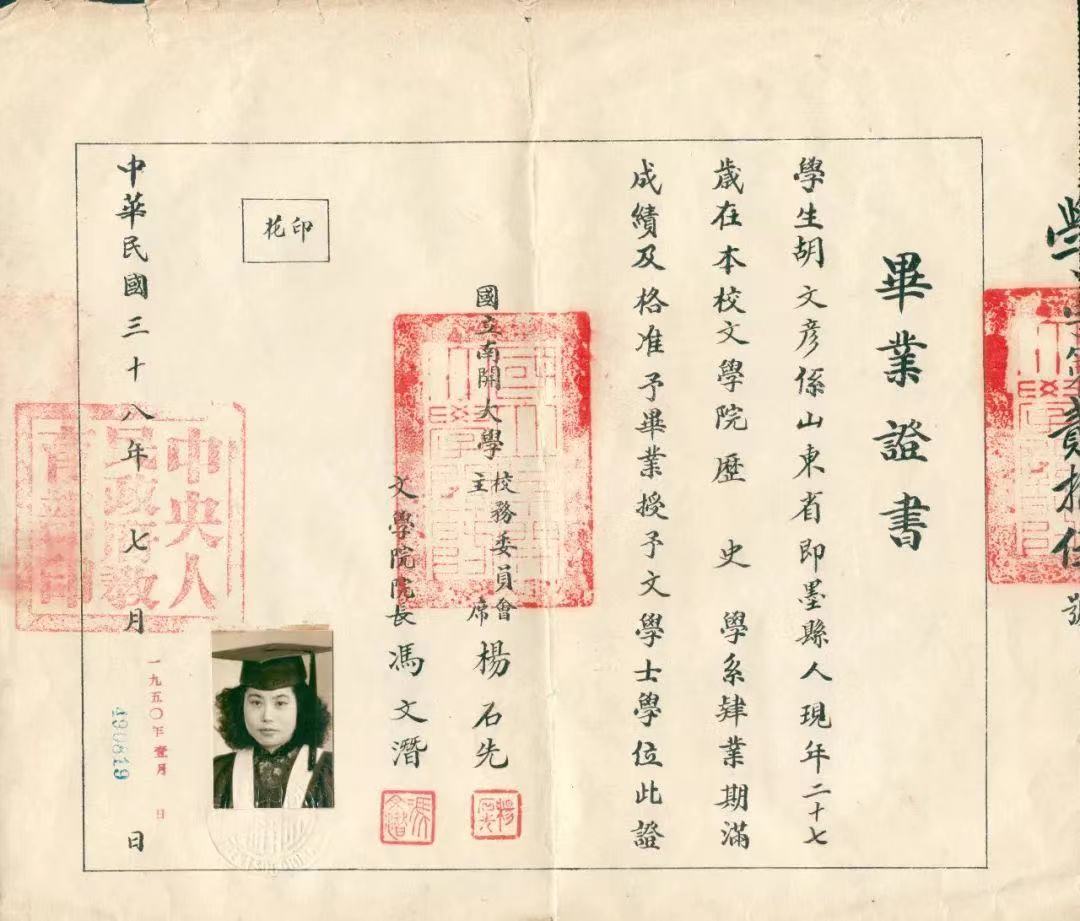 畢業證書
學生胡文彥係山東省即墨縣人現年二十七
歲在本校文學院歷史學系肄業期滿
成績及格准予畢業授予文學士學位此證
國立南開大學校務委員會主席楊石先
文學院院長馮文潛
印花
中華民國三十八年七月 日
一九五〇年壹月 日
490819
中央人民政府教育部印
楊石先
馮文潛